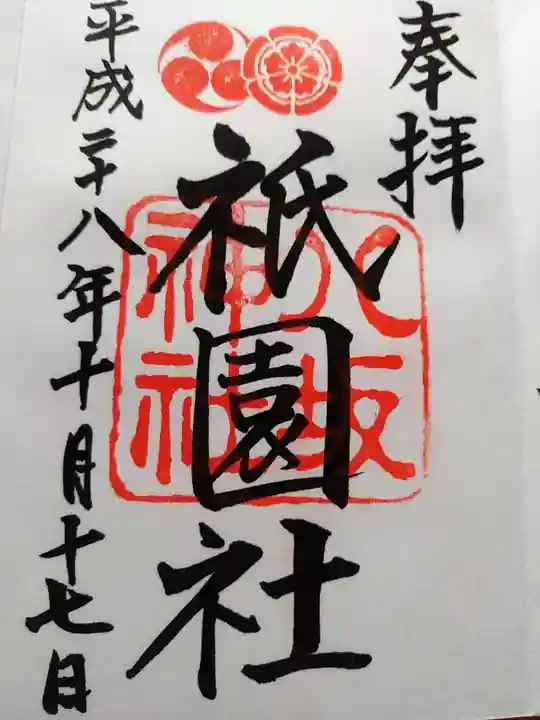 奉拝
八坂
神社
祇園社
平成二十八年十月十七日